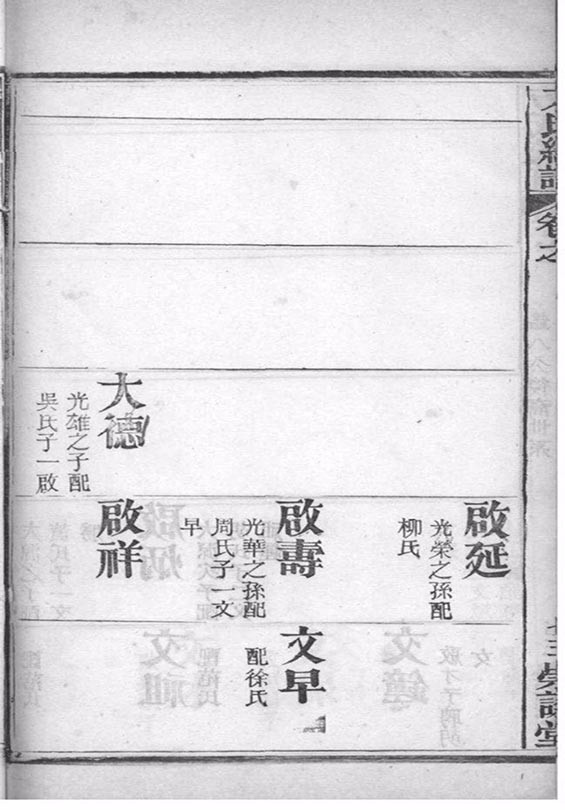 卷之
大德
光雄之子配
吳氏子一啟
啟延
光榮之孫配
柳氏
啟壽
光華之孫配
周氏子一文
早
啟祥
文早
配徐氏